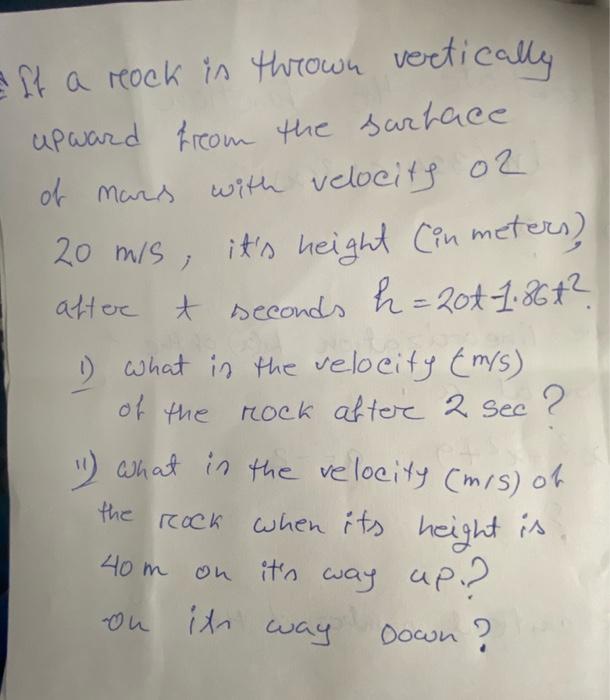 If a rock is thrown vertically
upward from the surface
of mars with velocity of
20 m/s, it's height (in meters)
after t seconds h = 20t-1.86t².
i) what is the velocity (m/s)
of the rock after 2 sec?
ii) what is the velocity (m/s) of
the rock when its height is
40m on it's way up?
on its way Down?